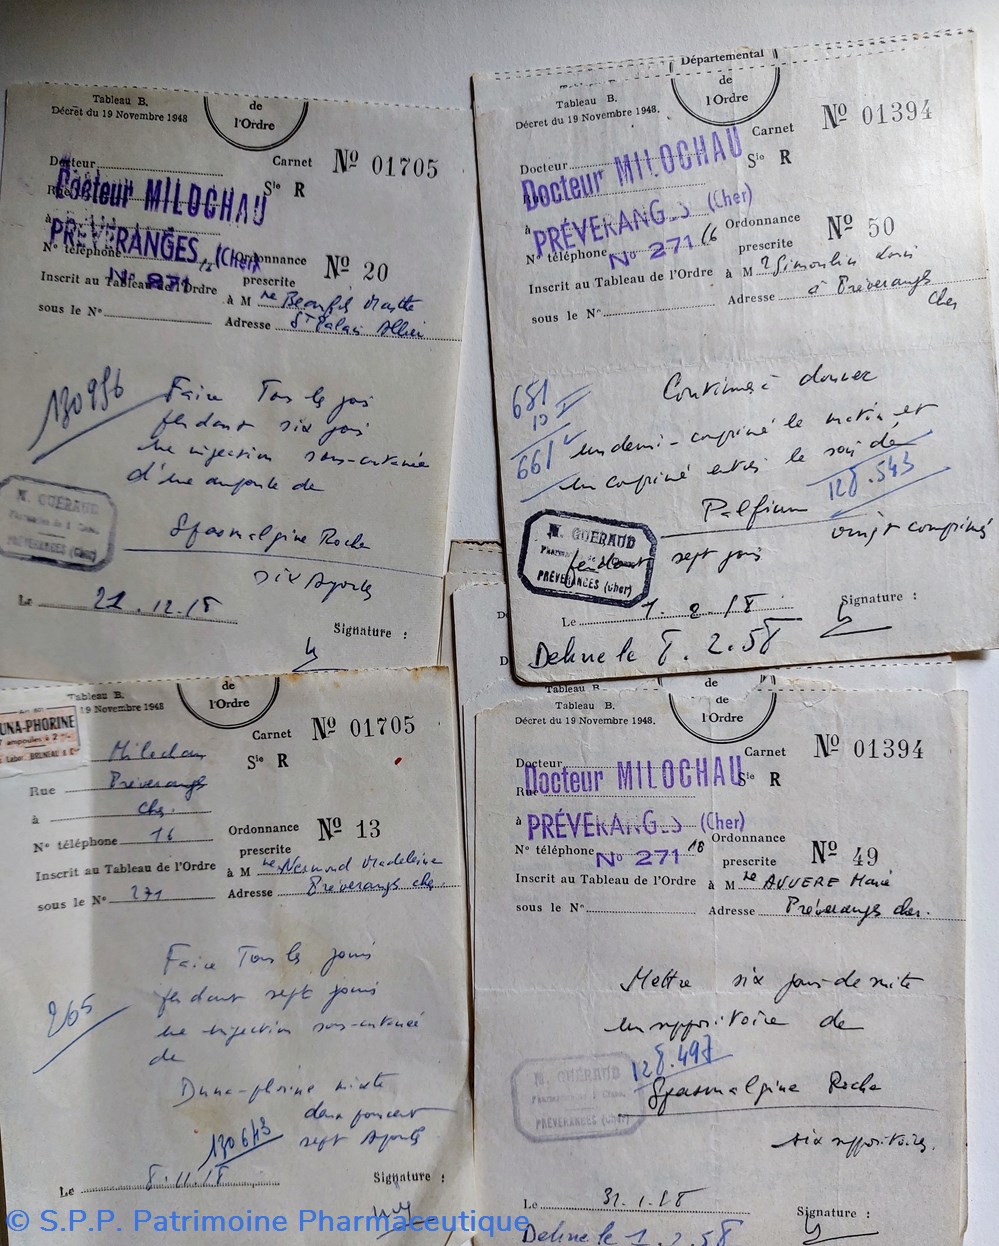 Tableau B.
Décret du 19 Novembre 1948
de
l'Ordre
Docteur
Carnet Nº 01705
Sie R
Docteur MILOCHAU
à
PRÉVERANGES (Cher)
Nº téléphone
Nº 271
Ordonnance prescrite Nº 20
Inscrit au Tableau de l'Ordre
à M
sous le Nº
Adresse St Palais Allier
130956
Faire Tous les jours
pendant six jours
une injection sous-cutanée
d'une ampoule de
Spasmalgine Roche
six Ampoules
M. GUÉRAUD
PRÉVERANGES (Cher)
Le 21.12.58
Signature :
Départemental
de
l'Ordre
Tableau B.
Décret du 19 Novembre 1948.
Docteur
Carnet Nº 01394
Sie R
Docteur MILOCHAU
à
PRÉVERANGES (Cher)
Nº téléphone 16
Nº 271
Ordonnance prescrite Nº 50
Inscrit au Tableau de l'Ordre
à M
sous le Nº
Adresse à Préveranges
Cher
Continuer à donner
un demi-comprimé le matin et
un comprimé entier le soir de
128.543
Palfium
vingt comprimés
pendant sept jours
M. GUÉRAUD
PRÉVERANGES (Cher)
Le 7.2.58
Signature :
Délivré le 8.2.58
Tableau B.
19 Novembre 1948
de
l'Ordre
DUNA-PHORINE
ampoules à 2
Carnet Nº 01705
Sie R
Milochau
Rue Préveranges
à Cher.
Nº téléphone 16
Ordonnance prescrite Nº 13
Inscrit au Tableau de l'Ordre
à M Madeleine
sous le Nº 271
Adresse Préveranges Cher
265
Faire Tous les jours
pendant sept jours
une injection sous-cutanée
de
Duna-phorine mixte
deux pour cent
130643
sept Ampoules
Le 8.11.58
Signature :
Tableau B
Décret du 19 Novembre 1948.
de
l'Ordre
Docteur
Carnet Nº 01394
Sie R
Docteur MILOCHAU
Rue
à
PRÉVERANGES (Cher)
Nº téléphone
Nº 271
Ordonnance prescrite Nº 49
Inscrit au Tableau de l'Ordre
à M AUVERE Marie
sous le Nº
Adresse Préveranges Cher.
Mettre six jours de suite
un suppositoire de
128.497
Spasmalgine Roche
six suppositoires.
M. GUÉRAUD
PRÉVERANGES (Cher)
Le 31.1.58
Signature :
Délivré le 1.2.58
© S.P.P. Patrimoine Pharmaceutique